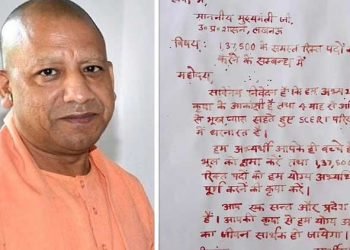 सेवा में,
माननीय मुख्यमंत्री जी,
उ०प्र०शासन, लखनऊ
विषय: 1,37,500 के समस्त रिक्त पदों
करने के सम्बन्ध में
महोदय,
सविनय निवेदन है कि हम अभ्य
कृपा के आकांक्षी हैं तथा 4 माह से
से भूख प्यास सहते हुए SCERT परि
में धरनारत हैं।
हम अभ्यर्थी आपके ही बच्चे हैं
भूल को क्षमा कर तथा 1,37,50
रिक्त पदों को हम योग्य अभ्या
पूर्ण करने की कृपा करें।
आप एक सन्त और प्रदेश
हैं। आपकी कृपा से हम योग्य अ
का जीवन सार्थक हो जायेगा।